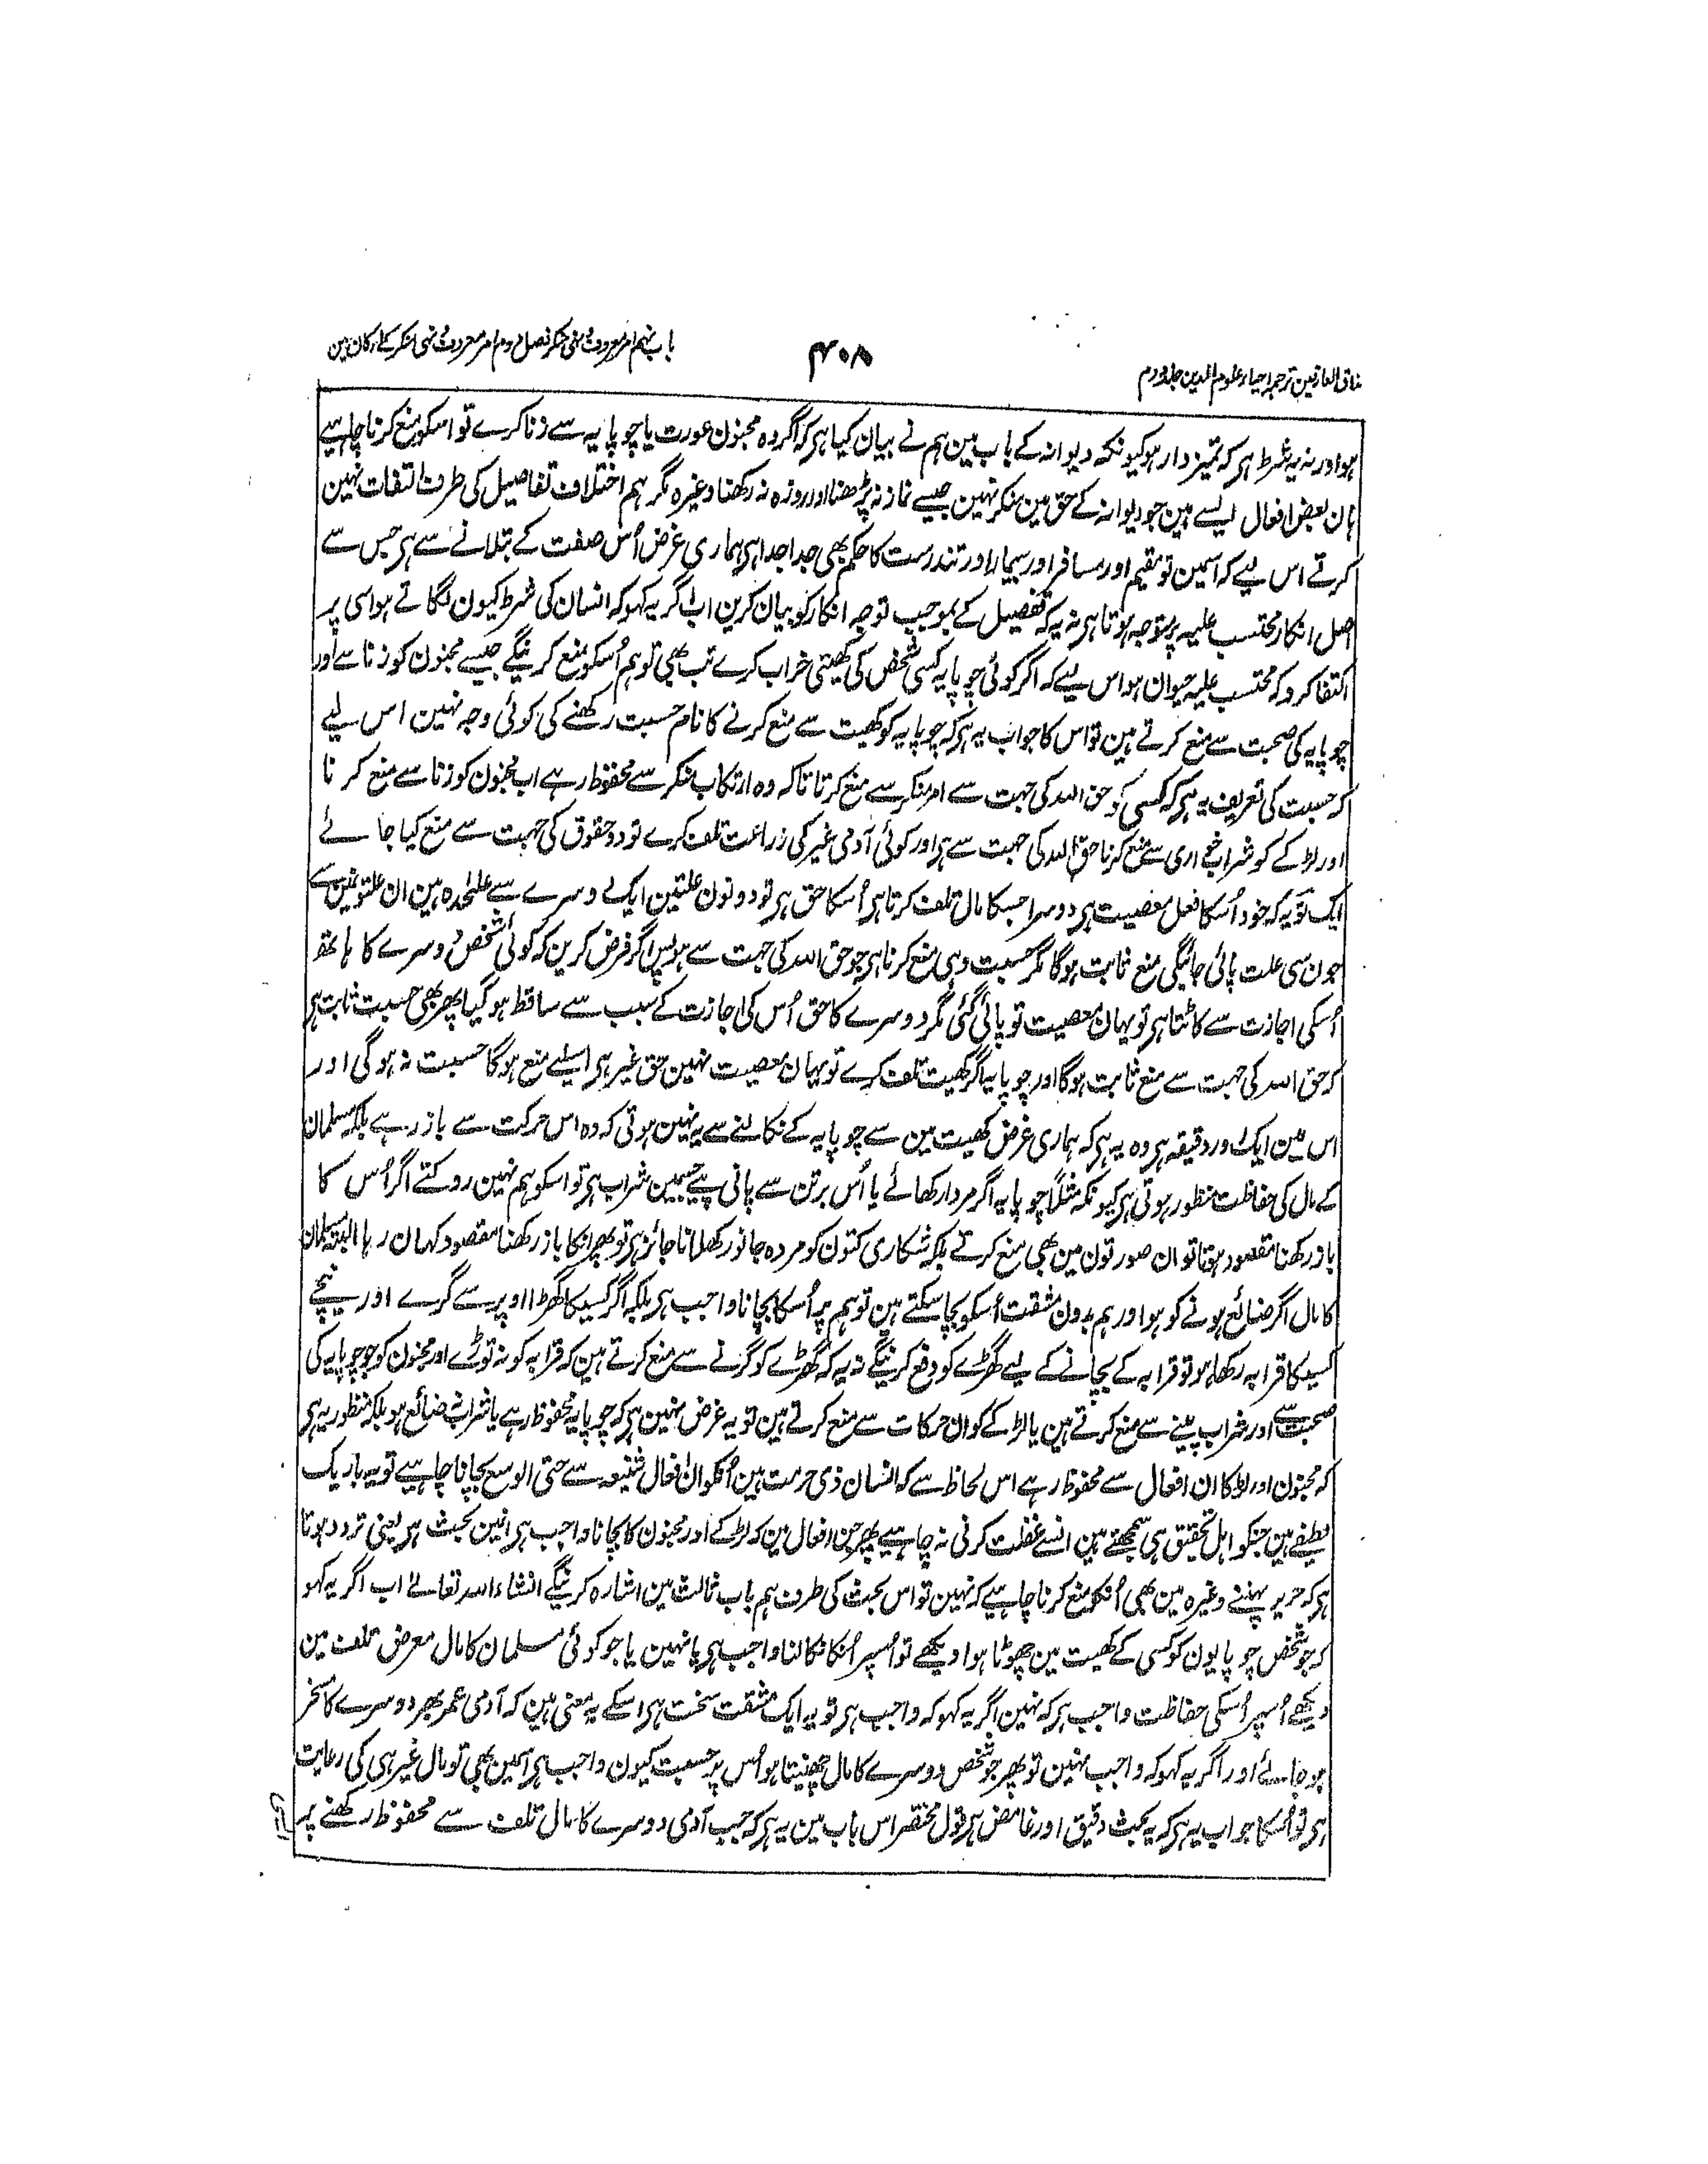 مذاق العارفین ترجمہ احیاء علوم الدین جلد دوم
۴۰۸
باب نہم امر معروف و نہی منکر فصل دوم امر معروف و نہی منکر کے ارکان مین
ہو اور نہ یہ شرط ہی کہ تمیز دار ہو کیونکہ دیوانہ کے باب مین ہم نے بیان کیا ہی کہ اگر وہ مجنون عورت یا چوپایہ سے زنا کرے تو اسکو منع کرنا چاہیے
ہان بعض افعال ایسے ہین جو دیوانہ کے حق مین منکر نہین جیسے نماز نہ پڑھنا اور روزہ نہ رکھنا وغیرہ مگر ہم اختلاف تفاصیل کی طرف التفات نہین
کرتے اس لیے کہ اسمین تو مقیم اور مسافر اور بیمار اور تندرست کا حکم بھی جدا جدا ہی ہماری غرض اُس صفت کے بتلانے سے ہی جس سے
اصل انکار محتسب علیہ پر متوجہ ہوتا ہی نہ یہ کہ تفصیل کے بموجب توجہ انکار کو بیان کرین اب اگر یہ کہو کہ انسان کی شرط کیون لگاتے ہو اسی پر
اکتفا کرو کہ محتسب علیہ حیوان ہو اس لیے کہ اگر کوئی چوپایہ کسی شخص کی کھیتی خراب کرے تب بھی تو ہم اُسکو منع کرینگے جیسے مجنون کو زنا سے اور
چوپایہ کی صحبت سے منع کرتے ہین تو اس کا جواب یہ ہی کہ چوپایہ کو کھیت سے منع کرنے کا نام حسبت رکھنے کی کوئی وجہ نہین اس لیے
کہ حسبت کی تعریف یہ ہی کہ کسی کو حق اللہ کی جہت سے امر منکر سے منع کرنا تاکہ وہ ارتکاب منکر سے محفوظ رہے اب مجنون کو زنا سے منع کرنا
اور لڑکے کو شراب خواری سے منع کرنا حق اللہ کی جہت سے ہی اور کوئی آدمی غیر کی زراعت تلف کرے تو دو حقوق کی جہت سے منع کیا جائے
ایک تو یہ کہ خود اُسکا فعل معصیت ہی دوسرا جسکا مال تلف کرتا ہی اُسکا حق ہی تو دونون علتین ایک دوسرے سے علٰحدہ ہین ان علتونمین سے
جون سی علت پائی جائیگی منع ثابت ہوگا مگر حسبت وہی منع کرنا ہی جو حق اللہ کی جہت سے ہو پس اگر فرض کرین کہ کوئی شخص دوسرے کا ہاتھ
اُسکی اجازت سے کاٹتا ہی تو یہان معصیت تو پائی گئی مگر دوسرے کا حق اُس کی اجازت کے سبب سے ساقط ہو گیا پھر بھی حسبت ثابت ہی
کہ حق اللہ کی جہت سے منع ثابت ہوگا اور چوپایہ اگر کھیت تلف کرے تو یہان معصیت نہین حق غیر ہی اسلیے منع ہوگا حسبت نہ ہوگی اور
اس مین ایک اور دقیقہ ہی وہ یہ ہی کہ ہماری غرض کھیت مین سے چوپایہ کے نکالنے سے یہ نہین ہوتی کہ وہ اس حرکت سے باز رہے بلکہ مسلمان
کے مال کی حفاظت منظور ہوتی ہی کیونکہ مثلاً چوپایہ اگر مردار کھائے یا اُس برتن سے پانی پیے جسمین شراب ہی تو اسکو ہم نہین روکتے اگر اُس کا
باز رکھنا مقصود ہوتا تو ان صورتون مین بھی منع کرتے بلکہ شکاری کتون کو مردہ جانور کھلانا جائز ہی تو پھر انکا باز رکھنا مقصود کہان رہا البتہ مسلمان
کا مال اگر ضائع ہونے کو ہو اور ہم بدون مشقت اُسکو بچا سکتے ہین تو ہم پر اُسکا بچانا واجب ہی بلکہ اگر کسیکا گھڑا اوپر سے گرے اور نیچے
کسیکا قرابہ رکھا ہو تو قرابہ کے بچانے کے لیے گھڑے کو دفع کرینگے نہ یہ کہ گھڑے کو گرنے سے منع کرتے ہین کہ قرابہ کو نہ توڑے اور مجنون کو جو چوپایہ کی
صحبت سے اور شراب پینے سے منع کرتے ہین یا لڑکے کو ان حرکات سے منع کرتے ہین تو یہ غرض نہین ہی کہ چوپایہ محفوظ رہے یا شراب نہ ضائع ہو بلکہ منظور یہ ہی
کہ مجنون اور لڑکا ان افعال سے محفوظ رہے اس لحاظ سے کہ انسان ذی حرمت ہین اُنکو ان افعال شنیعہ سے حتی الوسع بچانا چاہیے تو یہ باریک
لطیفے ہین جنکو اہل تحقیق ہی سمجھتے ہین انسے غفلت کرنی نہ چاہیے پھر جن افعال مین کہ لڑکے اور مجنون کا بچانا واجب ہی انمین بحث ہی یعنی تردد ہوتا
ہی کہ حریر پہننے وغیرہ مین بھی اُنکو منع کرنا چاہیے کہ نہین تو اس بحث کی طرف ہم باب ثالث مین اشارہ کرینگے انشاء اللہ تعالےٰ اب اگر یہ کہو
کہ جو شخص چوپایون کو کسی کے کھیت مین چھوٹا ہوا دیکھے تو اُسپر اُنکا نکالنا واجب ہی یا نہین یا جو کوئی مسلمان کا مال معرض تلف مین
دیکھے اُسپر اُسکی حفاظت واجب ہی کہ نہین اگر یہ کہو کہ واجب ہی تو یہ ایک مشقت سخت ہی اسکے یہ معنی ہین کہ آدمی عمر بھر دوسرے کا مسخر
ہو جائے اور اگر یہ کہو کہ واجب نہین تو پھر جو شخص دوسرے کا مال چھینتا ہو اُس پر حسبت کیون واجب ہی اسمین بھی تو مال غیر ہی کی رعایت
ہی تو اُسکا جواب یہ ہی کہ یہ بحث دقیق اور غامض ہی قول مختصر اس باب مین یہ ہی کہ جب آدمی دوسرے کا مال تلف سے محفوظ رکھنے پر